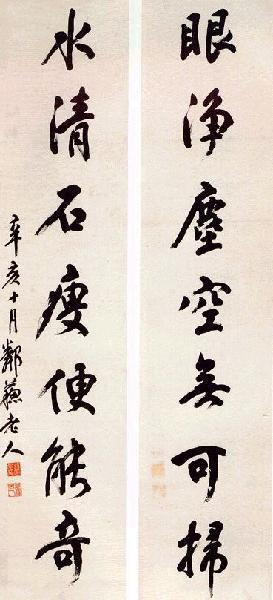 眼浄塵空無可掃
水清石瘦便能奇
辛亥十月鄰蘇老人